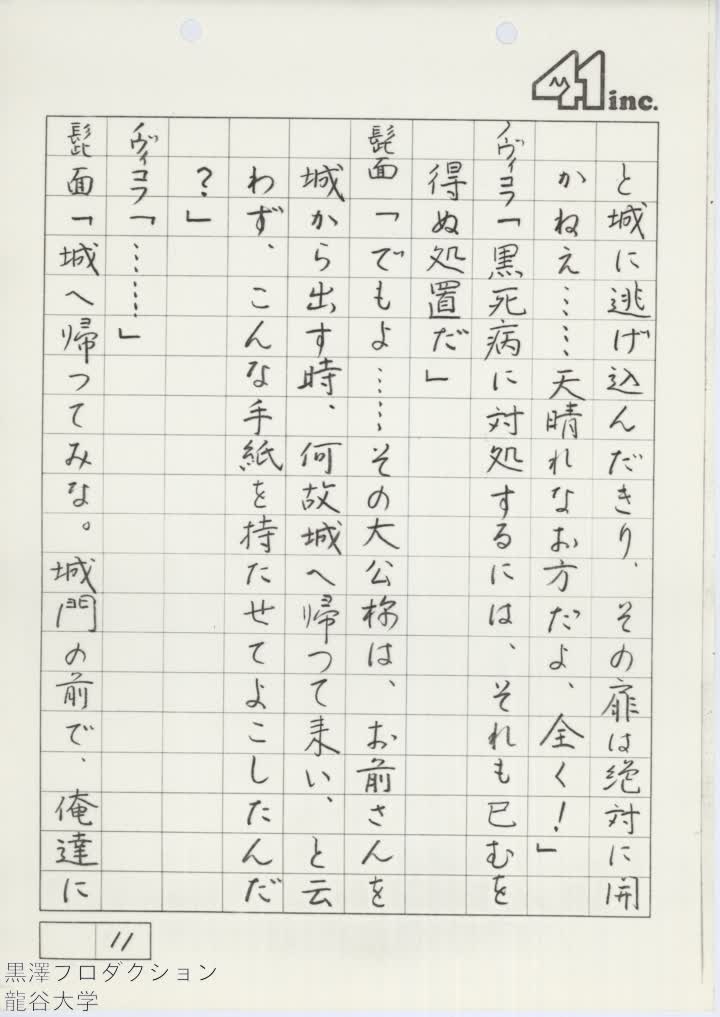 41 inc.
と城に逃げ込んだきり、その扉は絶対に開
かねえ……天晴れなお方だよ、全く！」
ノヴィコフ「黒死病に対処するには、それも已むを
得ぬ処置だ」
髭面「でもよ……その大公様は、お前さんを
城から出す時、何故城へ帰って来い、と云
わず、こんな手紙を持たせてよこしたんだ
？」
ノヴィコフ「……」
髭面「城へ帰ってみな。城門の前で、俺達に
11
黒澤プロダクション
龍谷大学